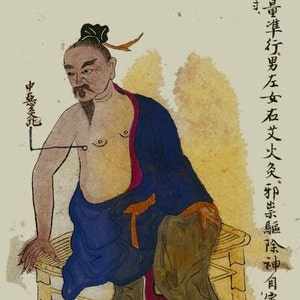 寸、
量準行、男左女右艾火灸、邪祟驅除神自
中惡灸穴